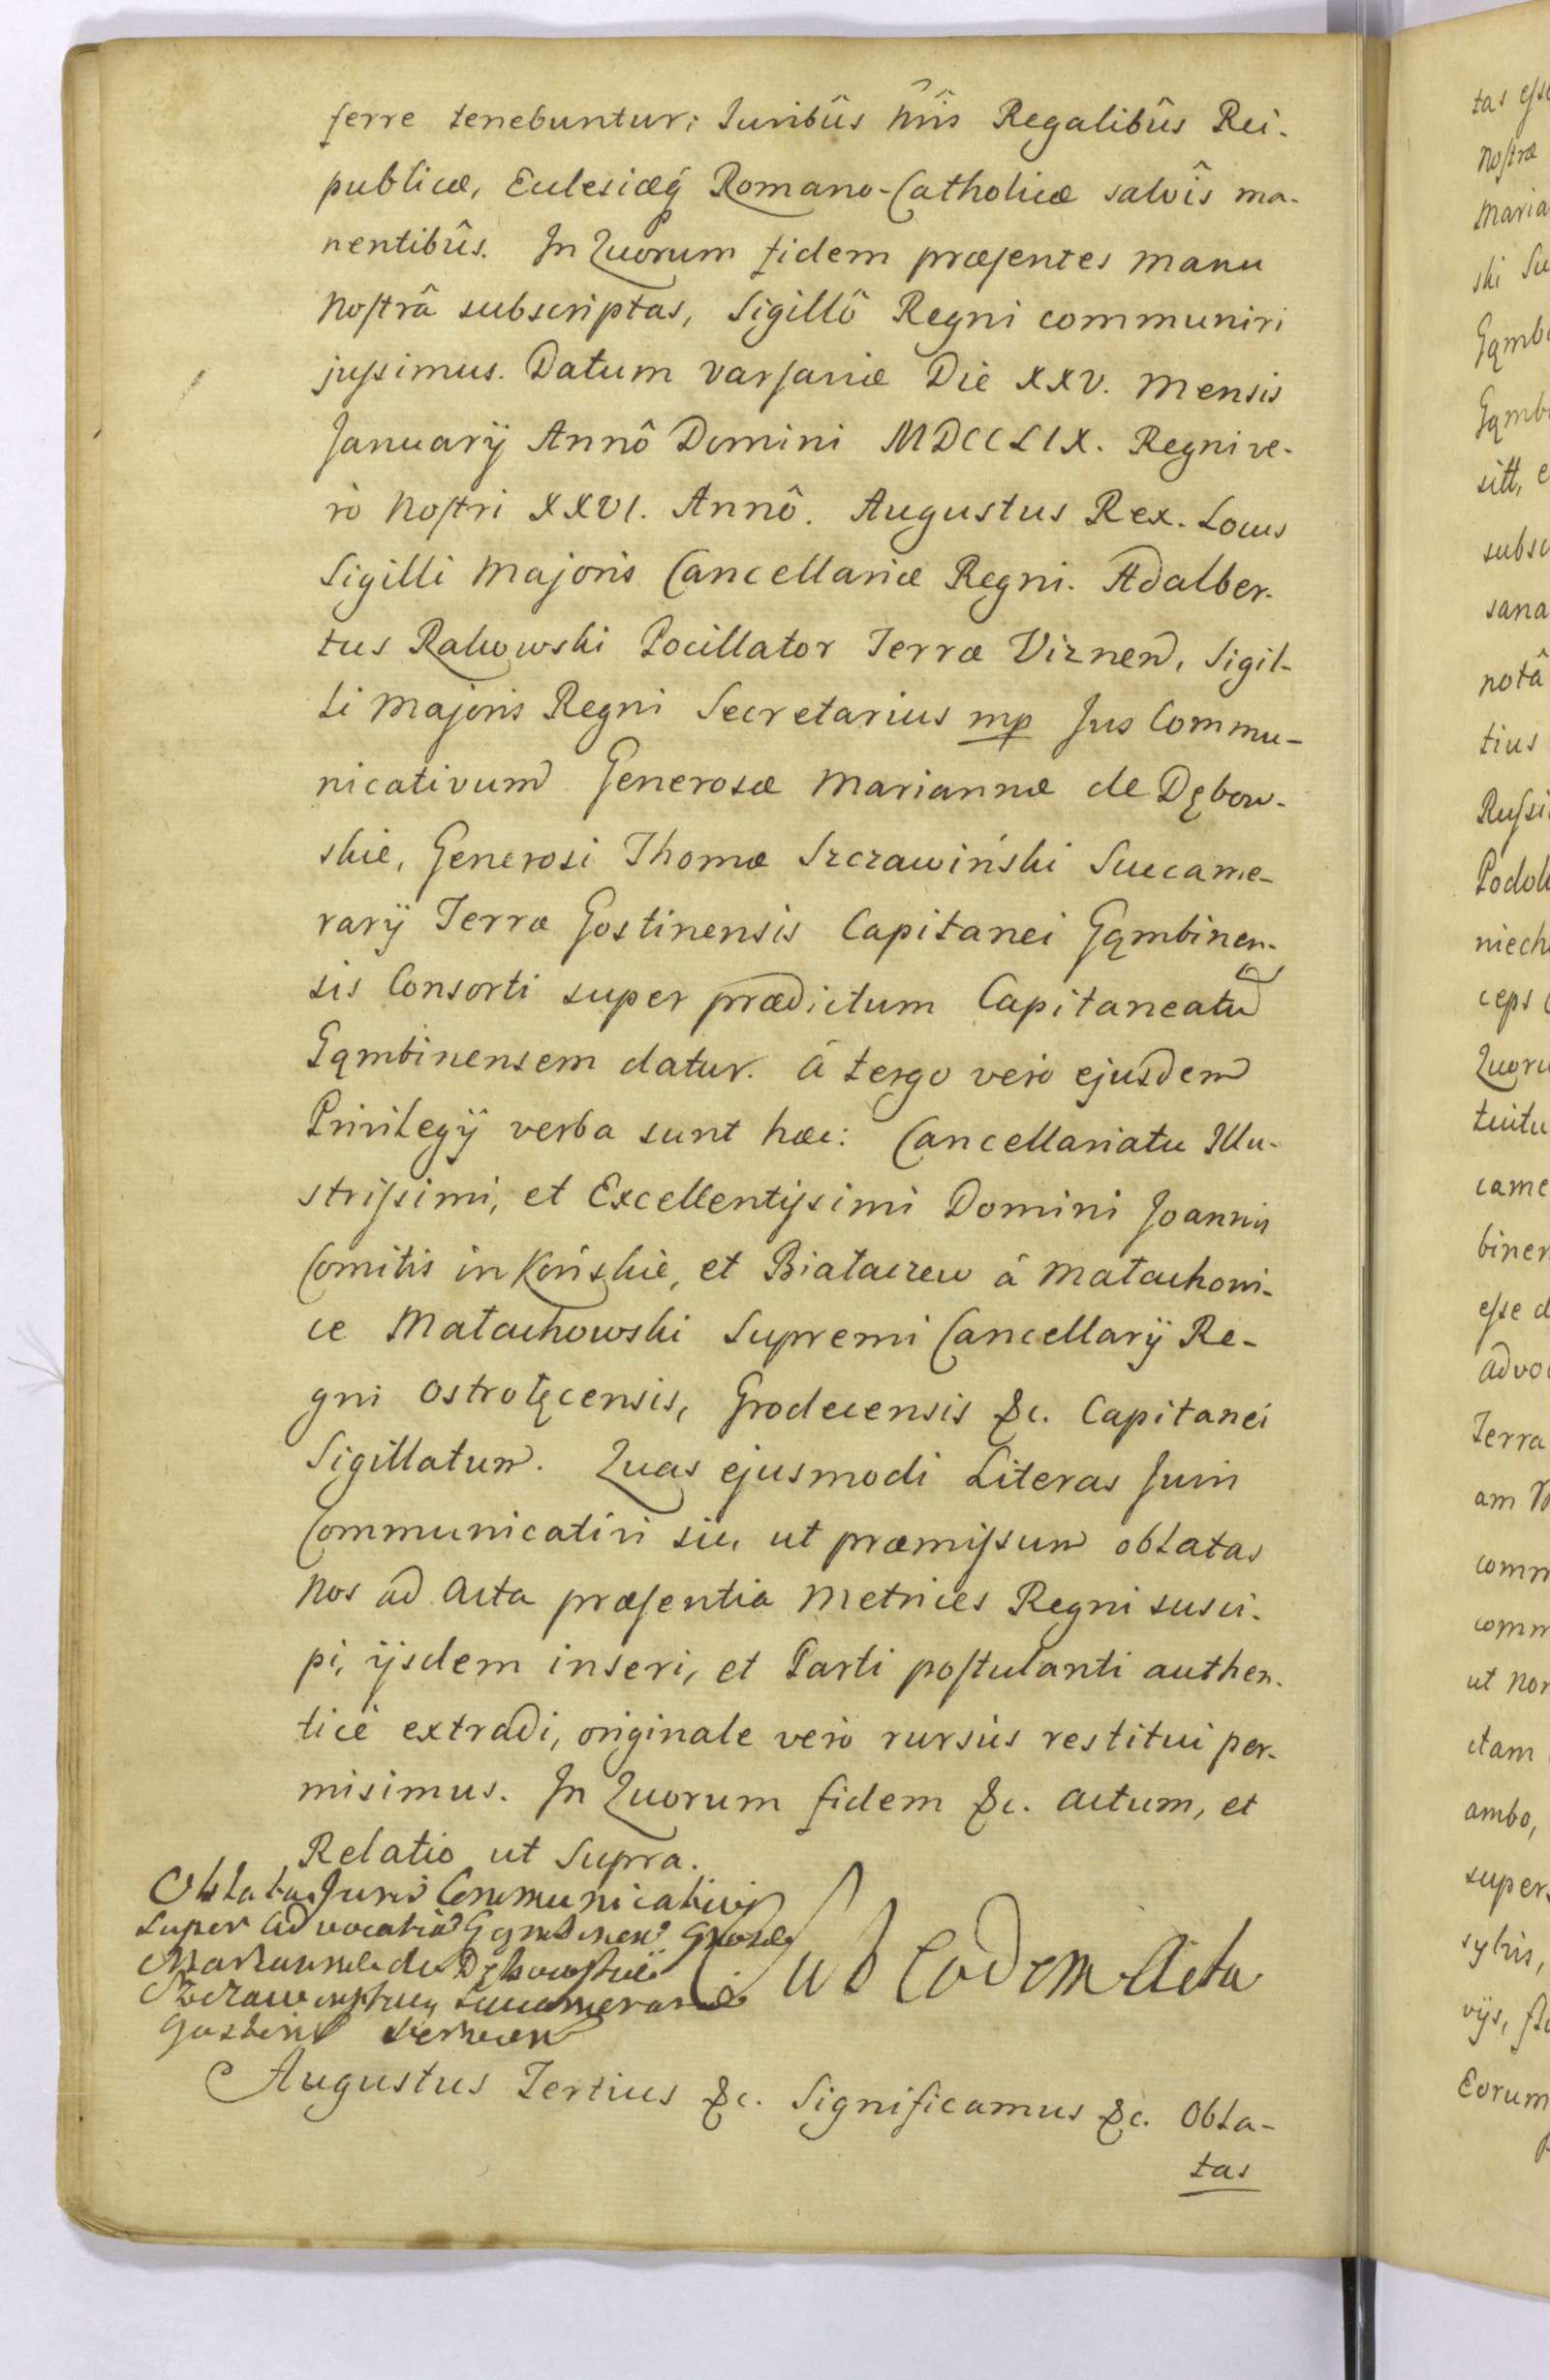 ferre tenebuntur; Juribûs Nr̃is Regalibûs Rei-
publicæ, Ecclesiæq́ Romano-Catholicæ salvîs ma-
nentibûs. In Quorum fidem præsentes manu
Nostrâ subscriptas, Sigillô Regni communiri
jussimus. Datum Varsaviæ Die XXV. Mensis
Januarÿ Annô Domini MDCCLIX. Regni ve-
rò Nostri XXVI. Annô. Augustus Rex. Locus
Sigilli Majoris Cancellariæ Regni. Adalber-
tus Rakowski Pocillator Terræ Viznen, Sigil-
li Majoris Regni Secretarius mp Jus Commu-
nicativum Generosæ Mariannæ de Dębow-
skie, Generosi Thomæ Szczawiński Succame-
rarÿ Terræ Gostinensis Capitanei Gąmbinen-
sis Consorti super prædictum Capitaneatu
Gąmbinensem datur. â tergo verò ejusdem
Privilegÿ verba sunt hæc: Cancellariatu Illu-
strissimi, et Excellentissimi Domini Joannis
Comitis in Końskie, et Białaczew â Małachowi-
ce Małachowski Supremi Cancellarÿ Re-
gni Ostrołęcensis, Grodecensis &c. Capitanei
Sigillatum. Quas ejusmodi Literas Juris
Communicativi sic, ut præmissum oblatas
Nos ad Acta præsentia Metrices Regni susci-
pi, ÿsdem inseri, et Parti postulanti authen-
ticè extradi, originale verò rursùs restitui per-
misimus. In Quorum fidem &c. Actum, et
Relatio ut Supra.
Oblata Juris Communicativi
super Advocatiã Gąmbinen Grosæ
Mariannæ de Dębowskie
Szczawinskiey Succamerariæ
Gostin
Sub Eodem Actu
Augustus Tertius &c. Significamus &c. Obla-
tas
tas esse
Nostræ
Maria
ski Su
Gąmb
Gąmb
sitt, e
subsc
sana
notâ
tius
Russi
Podol
niech
ceps
Quoru
tuitu
came
binen
esse d
advo
Terra
am
comm
comm
ut non
ctam
ambo,
super
sylvis,
vÿs,
Eorum